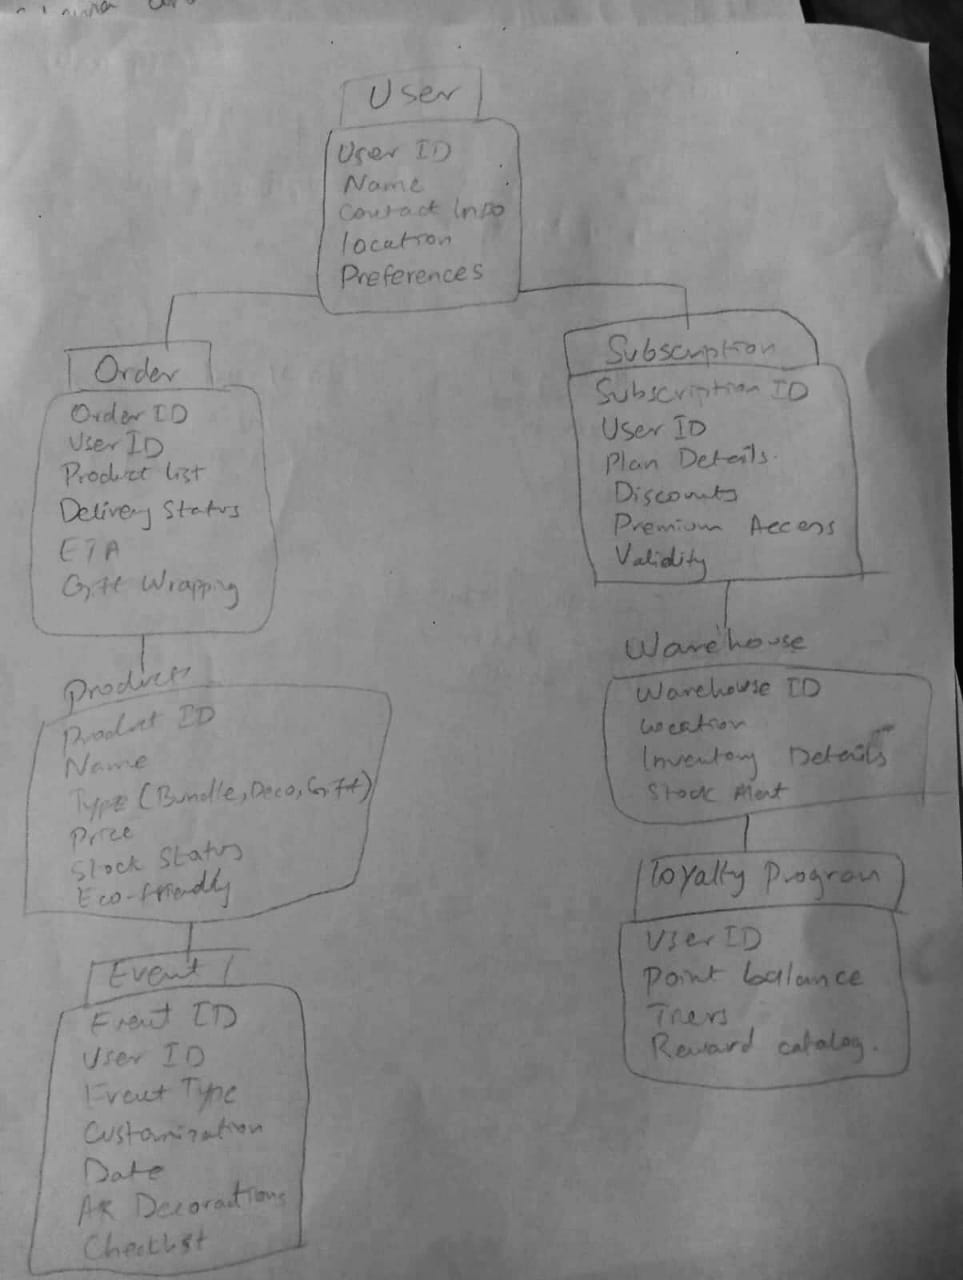 User
User ID
Name
Contact Info
location
Preferences
Order
Order ID
User ID
Product list
Delivery Status
ETA
Gift Wrapping
Products
Product ID
Name
Type (Bundle, Deco, Gift)
Price
Stock Status
Eco-friendly
Event
Event ID
User ID
Event Type
Customization
Date
AR Decorations
Checklist
Subscription
Subscription ID
User ID
Plan Details.
Discounts
Premium Access
Validity
Warehouse
Warehouse ID
Location
Inventory Details
Stock Alert
loyalty Program
User ID
Point balance
Tiers
Reward catalog.